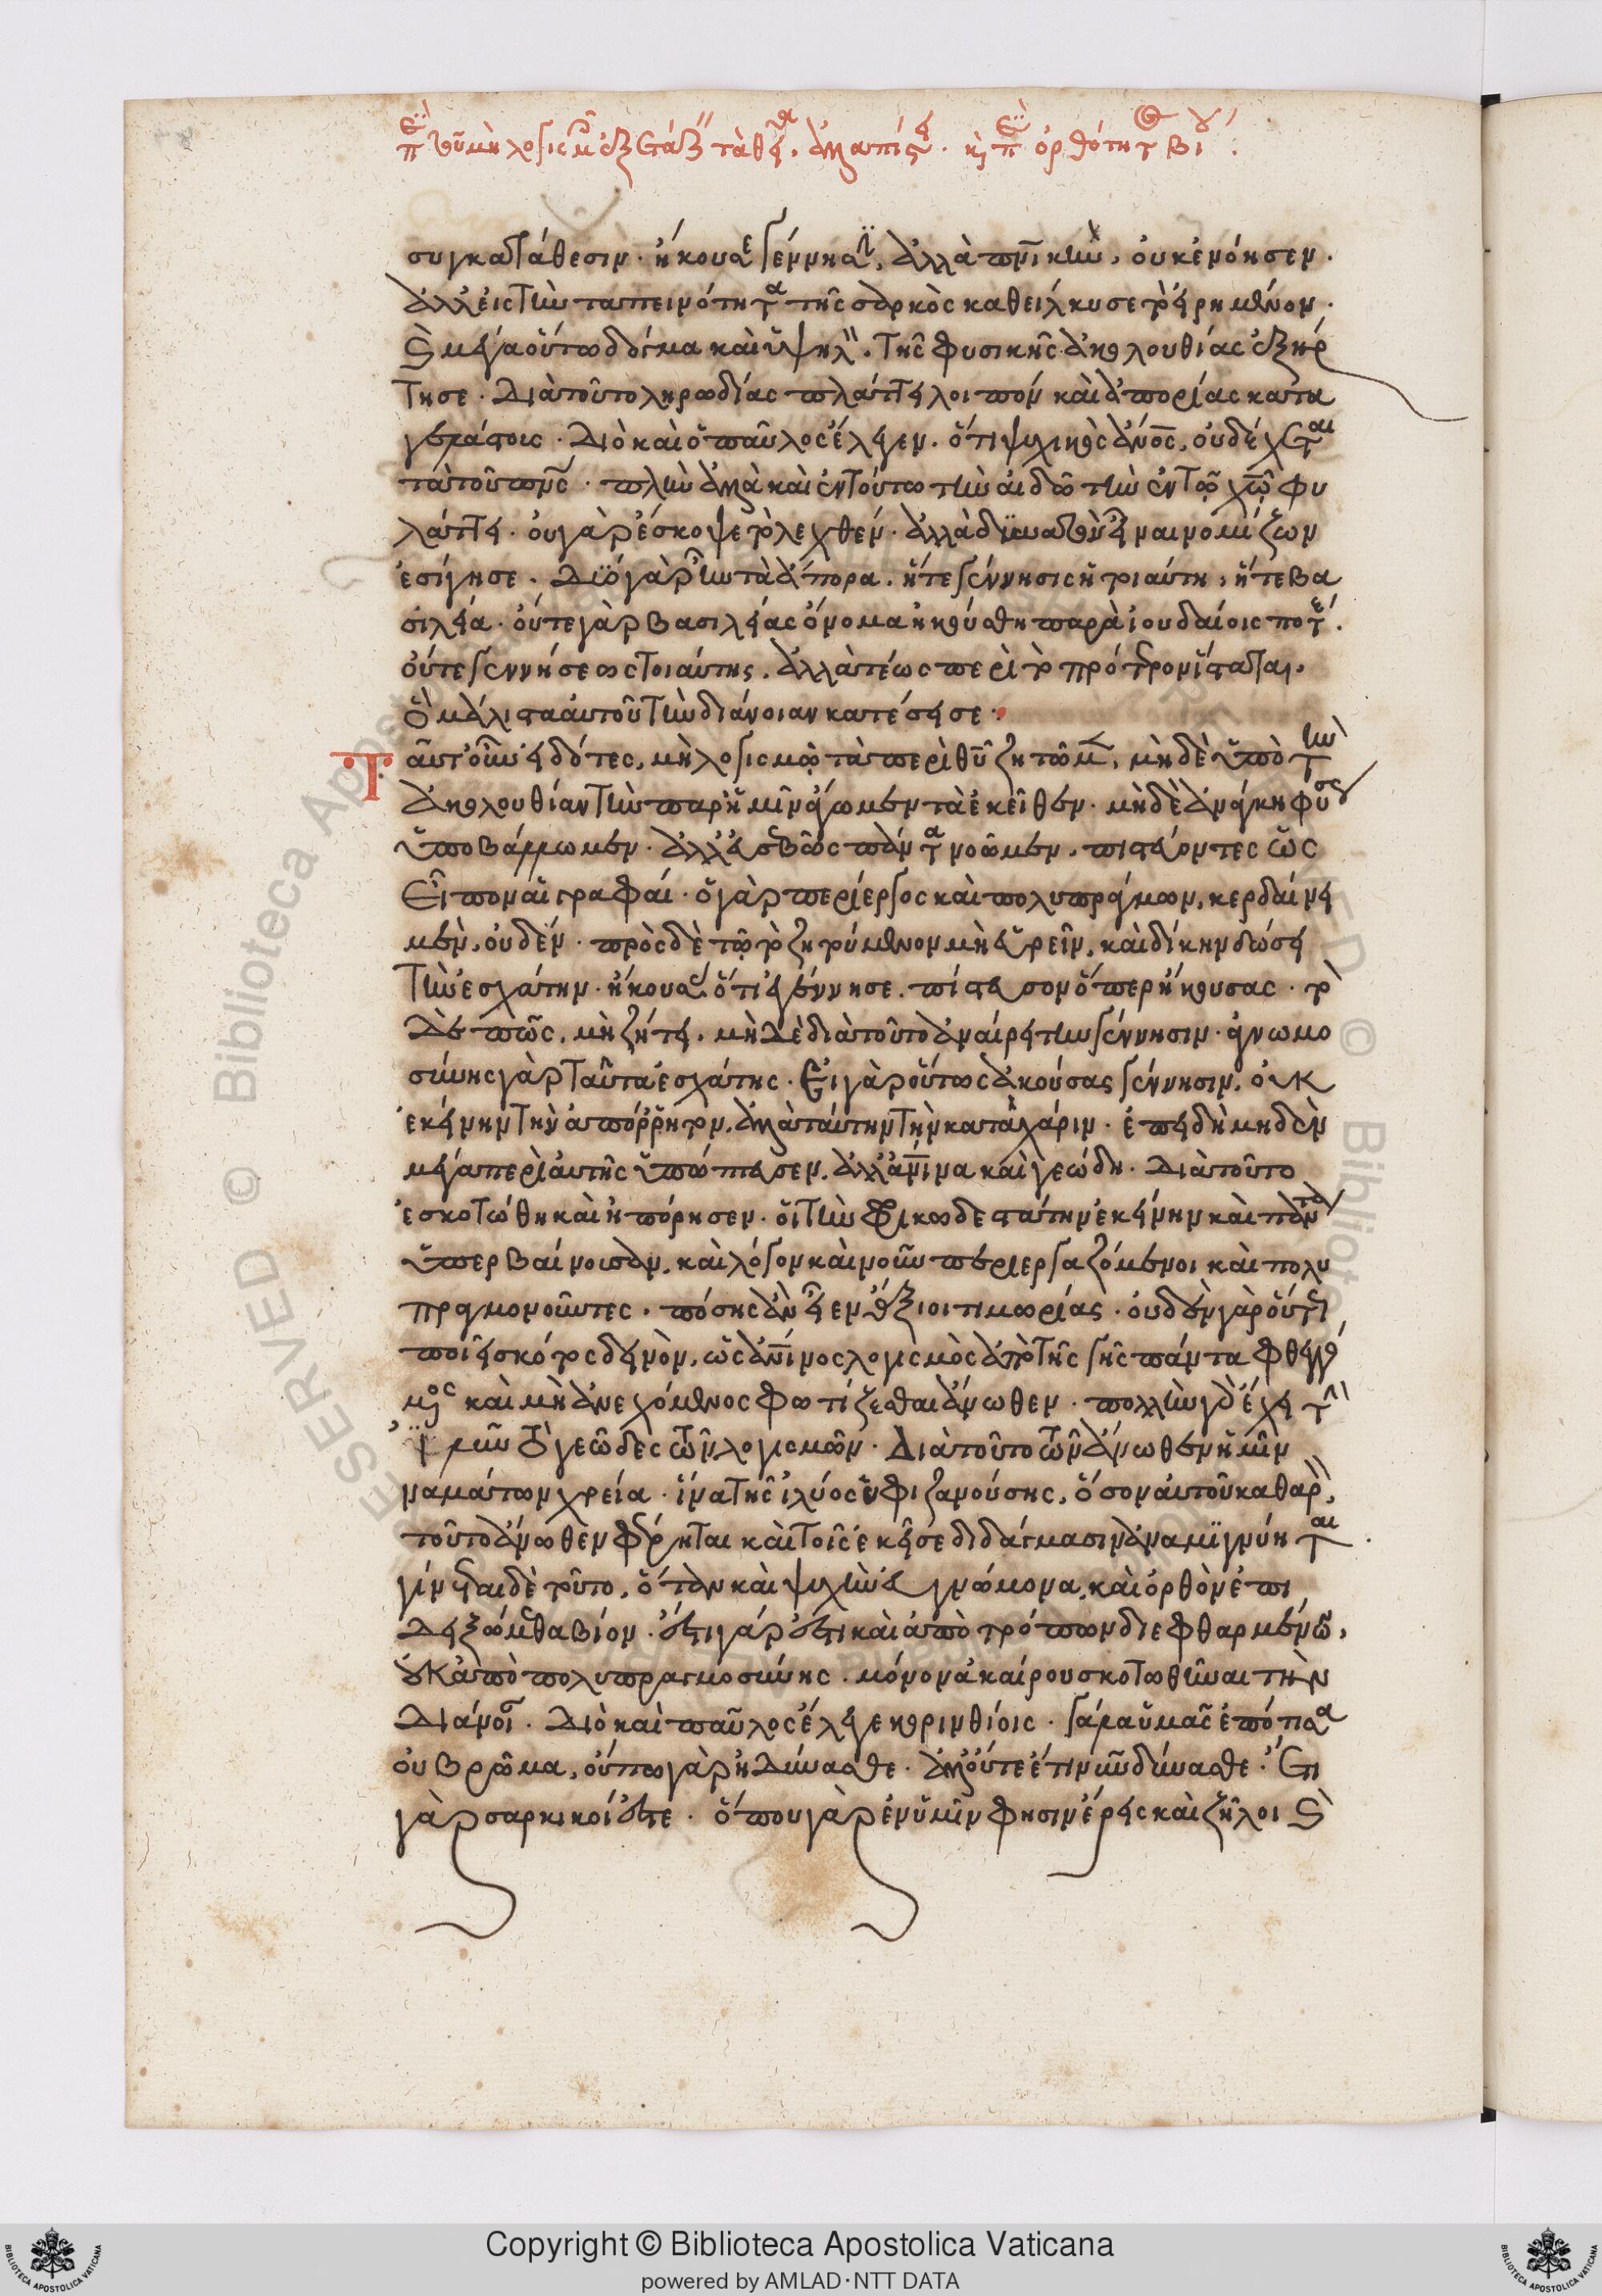 συγκατάθεσιν· ἤκουσε γέννησιν, ἀλλὰ πνικὴν, οὐκ ἐνόησεν.
ἀλλ' εἰς τὴν ταπεινότητα τῆς σαρκὸς καθείλκυσε τὸ εἰρημένον.
καὶ μέγα οὕτω δόγμα καὶ ὑψηλὸν, τῆς φυσικῆς ἀκολουθίας ἐξήρ
τησε. Διὰ τοῦτο ληρωδίας πλάττει λοιπὸν καὶ ἀπορίας κατα
γελάστοις. Διὸ καὶ ὁ παῦλος ἔλεγεν. ὅτι ψυχικὸς ἄνος, οὐ δέχεται
τὰ τοῦ πνς. πλὴν ἀλλὰ καὶ ἐν τούτω τὴν αἰδῶ τὴν ἐν τῷ χῶ φυ
λάττει. οὐ γὰρ ἔσκοψε τὸ λεχθέν. ἀλλὰ ἀδύνατον εἶναι νομίζων
ἐσίγησε. Δύο γὰρ ἦν τὰ ἄπορα. ἥτε γέννησις ἡ τοιαύτη, ἥτε βα
σιλεία. οὔτε γὰρ βασιλείας ὄνομα ἠκούσθη παρὰ ἰουδαίοις ποτέ.
οὔτε γεννήσεως τοιαύτης. ἀλλὰ τέως περὶ τὸ πρότερον ἵσταται.
ὃ μάλιστα αὐτοῦ τὴν διάνοιαν κατέσεισε.
Ταῦτ' οὖν εἰδότες, μὴ λογισμῷ τὰ περὶ θῦ ζητῶμεν, μηδὲ ὑπὸ τὴν
ἀκολουθίαν τὴν παρ' ἡμῖν ἄγωμεν τὰ ἐκεῖθεν. μηδὲ ἀνάγκη φύσεως
ὑποβάλλωμεν. ἀλλ' εὐσεβῶς πάντα νοῶμεν. πιστεύοντες ὡς
εἶπον αἱ γραφαί. ὁ γὰρ περίεργος καὶ πολυπράγμων, κερδαίνει
μὲν, οὐδέν. πρὸς δὲ τῷ τὸ ζητούμενον μὴ εὑρεῖν, καὶ δίκην δώσει
τὴν ἐσχάτην. ἤκουσας ὅτι ἐγέννησε. πίστευσον ὅπερ ἤκουσας. τὸ
δὲ πῶς, μὴ ζήτει. μηδὲ διὰ τοῦτο ἀναίρει τὴν γέννησιν. ἀγνωμο
σύνης γὰρ ταῦτα ἐσχάτης. Εἰ γὰρ οὕτος ἀκούσας γέννησιν, οὐκ
ἐκείνην τὴν ἀπόρρητον, ἀλλὰ ταύτην τὴν κατὰ χάριν. ἐπειδὴ μηδὲν
μέγα περὶ αὐτῆς ὑπώπτευσεν, ἀλλ' ἀνινα καὶ γεώδη. Διὰ τοῦτο
ἐσκοτώθη καὶ ἠπόρησεν. οἱ τὴν φρικωδεστάτην ἐκείνην καὶ πάντα
ὑπερβαίνουσαν, καὶ λόγον καὶ νοῦν περιεργαζόμενοι καὶ πολυ
πραγμονοῦντες. πόσης ἂν εἶεν ἄξιοι τιμωρίας. οὐδὲν γὰρ οὕτω
ποιεῖ σκότος δεινὸν, ὡς ἀνινος λογισμὸς ἀπὸ τῆς γῆς πάντα φθεγγό
μενος καὶ μὴ ἀνεχόμενος φωτίζεσθαι ἄνωθεν. πολλὴν γὰρ ἔχει τὴν
τὸ γεῶδες τῶν λογισμῶν. Διὰ τοῦτο τῶν ἄνωθεν ἡμῖν
ναμάτων χρεία. ἵνα τῆς ἰλύος ὑφιζανούσης, ὅσον αὐτοῦ καθαρὸν,
τοῦτο ἄνω θεν φέρηται καὶ τοῖς ἐκεῖσε διδάγμασιν ἀναμιγνύηται.
γίνεται δὲ τοῦτο, ὅταν καὶ ψυχὴν εὐγνώμονα, καὶ ὀρθὸν ἐπι
δειξώμεθα βίον. ἔστι γὰρ ἔστι καὶ ἀπὸ τρόπων διεφθαρμένων,
οὐκ ἀπὸ πολυπραγμοσύνης μόνον ἀκαίρου σκοτωθῆναι τὴν
διάνοιαν. Διὸ καὶ παῦλος ἔλεγε κορινθίοις. γάλα ὑμᾶς ἐπότισα
οὐ βρῶμα, οὔπω γὰρ ἠδύνασθε. ἀλλ' οὔτε ἔτι νῦν δύνασθε. ἔτι
γὰρ σαρκικοί ἐστε. ὅπου γὰρ ἐν ὑμῖν φησιν ἔρεις καὶ ζῆλοι καὶ
Copyright © Biblioteca Apostolica Vaticana
powered by AMLAD·NTT DATA